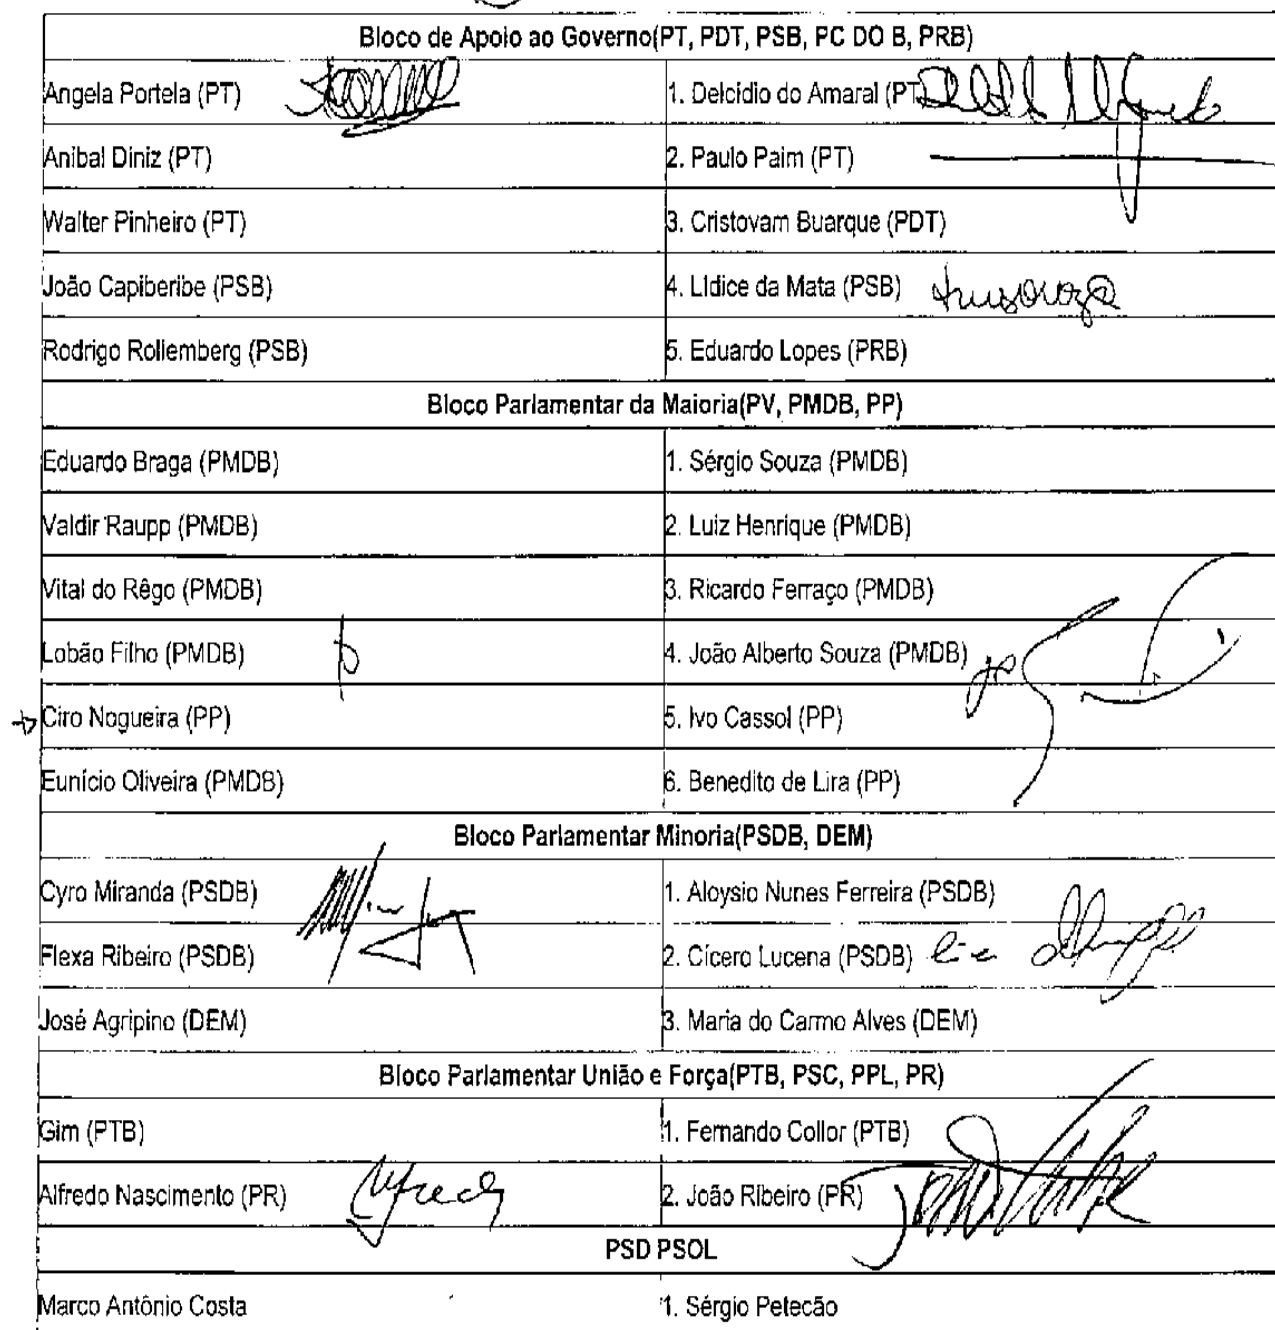 Bloco de Apoio ao Governo(PT, PDT, PSB, PC DO B, PRB)
Angela Portela (PT) 1. Delcídio do Amaral (PT
Aníbal Diniz (PT) 2. Paulo Paim (PT)
Walter Pinheiro (PT) 3. Cristovam Buarque (PDT)
João Capiberibe (PSB) 4. Lídice da Mata (PSB)
Rodrigo Rollemberg (PSB) 5. Eduardo Lopes (PRB)
Bloco Parlamentar da Maioria(PV, PMDB, PP)
Eduardo Braga (PMDB) 1. Sérgio Souza (PMDB)
Valdir Raupp (PMDB) 2. Luiz Henrique (PMDB)
Vital do Rêgo (PMDB) 3. Ricardo Ferraço (PMDB)
Lobão Filho (PMDB) 4. João Alberto Souza (PMDB)
Ciro Nogueira (PP) 5. Ivo Cassol (PP)
Eunício Oliveira (PMDB) 6. Benedito de Lira (PP)
Bloco Parlamentar Minoria(PSDB, DEM)
Cyro Miranda (PSDB) 1. Aloysio Nunes Ferreira (PSDB)
Flexa Ribeiro (PSDB) 2. Cícero Lucena (PSDB)
José Agripino (DEM) 3. Maria do Carmo Alves (DEM)
Bloco Parlamentar União e Força(PTB, PSC, PPL, PR)
Gim (PTB) 1. Fernando Collor (PTB)
Alfredo Nascimento (PR) 2. João Ribeiro (PR)
PSD PSOL
Marco Antônio Costa 1. Sérgio Petecão